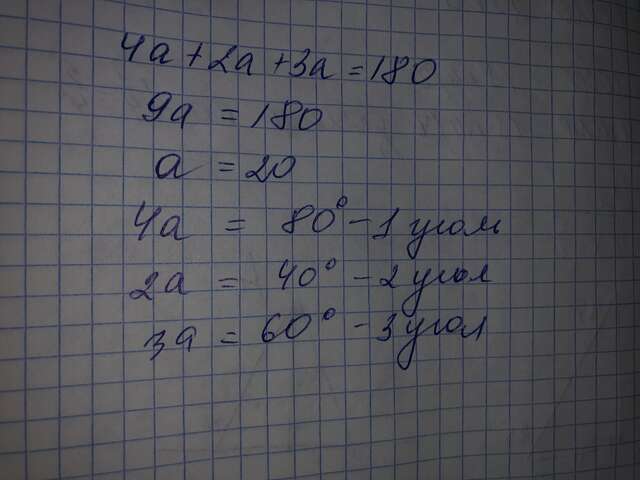 4a + 2a + 3a = 180
9a = 180
a = 20
4a = 80° - 1 угол
2a = 40° - 2 угол
3a = 60° - 3 угол